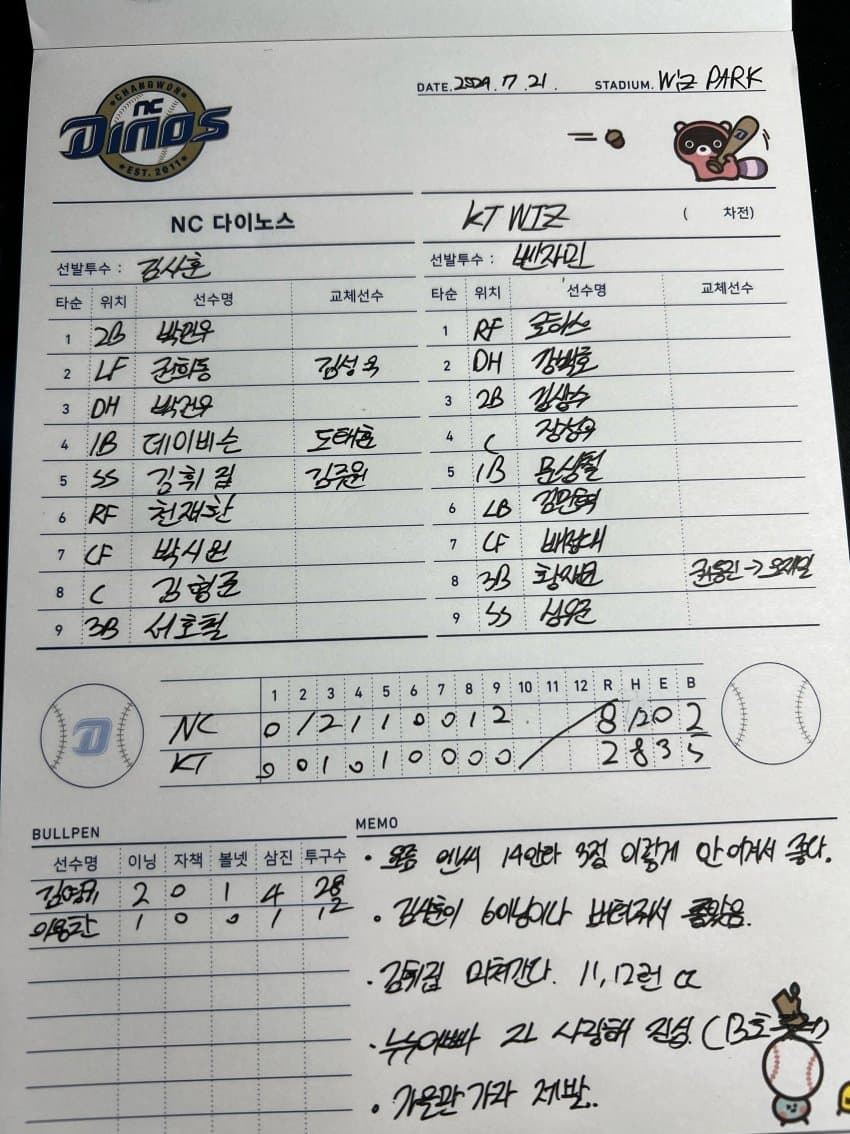 CHANGWON
NC
DINOS
EST. 2011
DATE. 2024. 7. 21. STADIUM. Wiz PARK
NC 다이노스 KT WIZ ( 차전)
선발투수 : 김사훈 선발투수 : 벤자민
타순 위치 선수명 교체선수 타순 위치 선수명 교체선수
1 2B 박민우 1 RF 로하스
2 LF 권희동 김성욱 2 DH 강백호
3 DH 박건우 3 2B 김상수
4 1B 데이비슨 도태훈 4 C 장성우
5 SS 김휘집 김주원 5 1B 문상철
6 RF 천재환 6 LB 김민혁
7 CF 박시원 7 CF 배정대
8 C 김형준 8 3B 황재균 권동진 → 오재일
9 3B 서호철 9 SS 심우준
1 2 3 4 5 6 7 8 9 10 11 12 R H E B
NC 0 1 2 1 1 0 0 1 2 8 12 0 2
KT 0 0 1 0 1 0 0 0 0 2 8 3 5
BULLPEN
선수명 이닝 자책 볼넷 삼진 투구수
김영규 2 0 1 4 28
이용찬 1 0 0 1 12
MEMO
• 요즘 엔씨 14안타 3점 이렇게 안 이겨서 좋다.
• 김사훈이 6이닝이나 버텨줘서 좋았음.
• 김휘집 미쳐간다. 11, 12런 ㄷㄷ
• 뉴슈아빠 고 사랑해 진심. (B호
• 가을만 가라 제발..